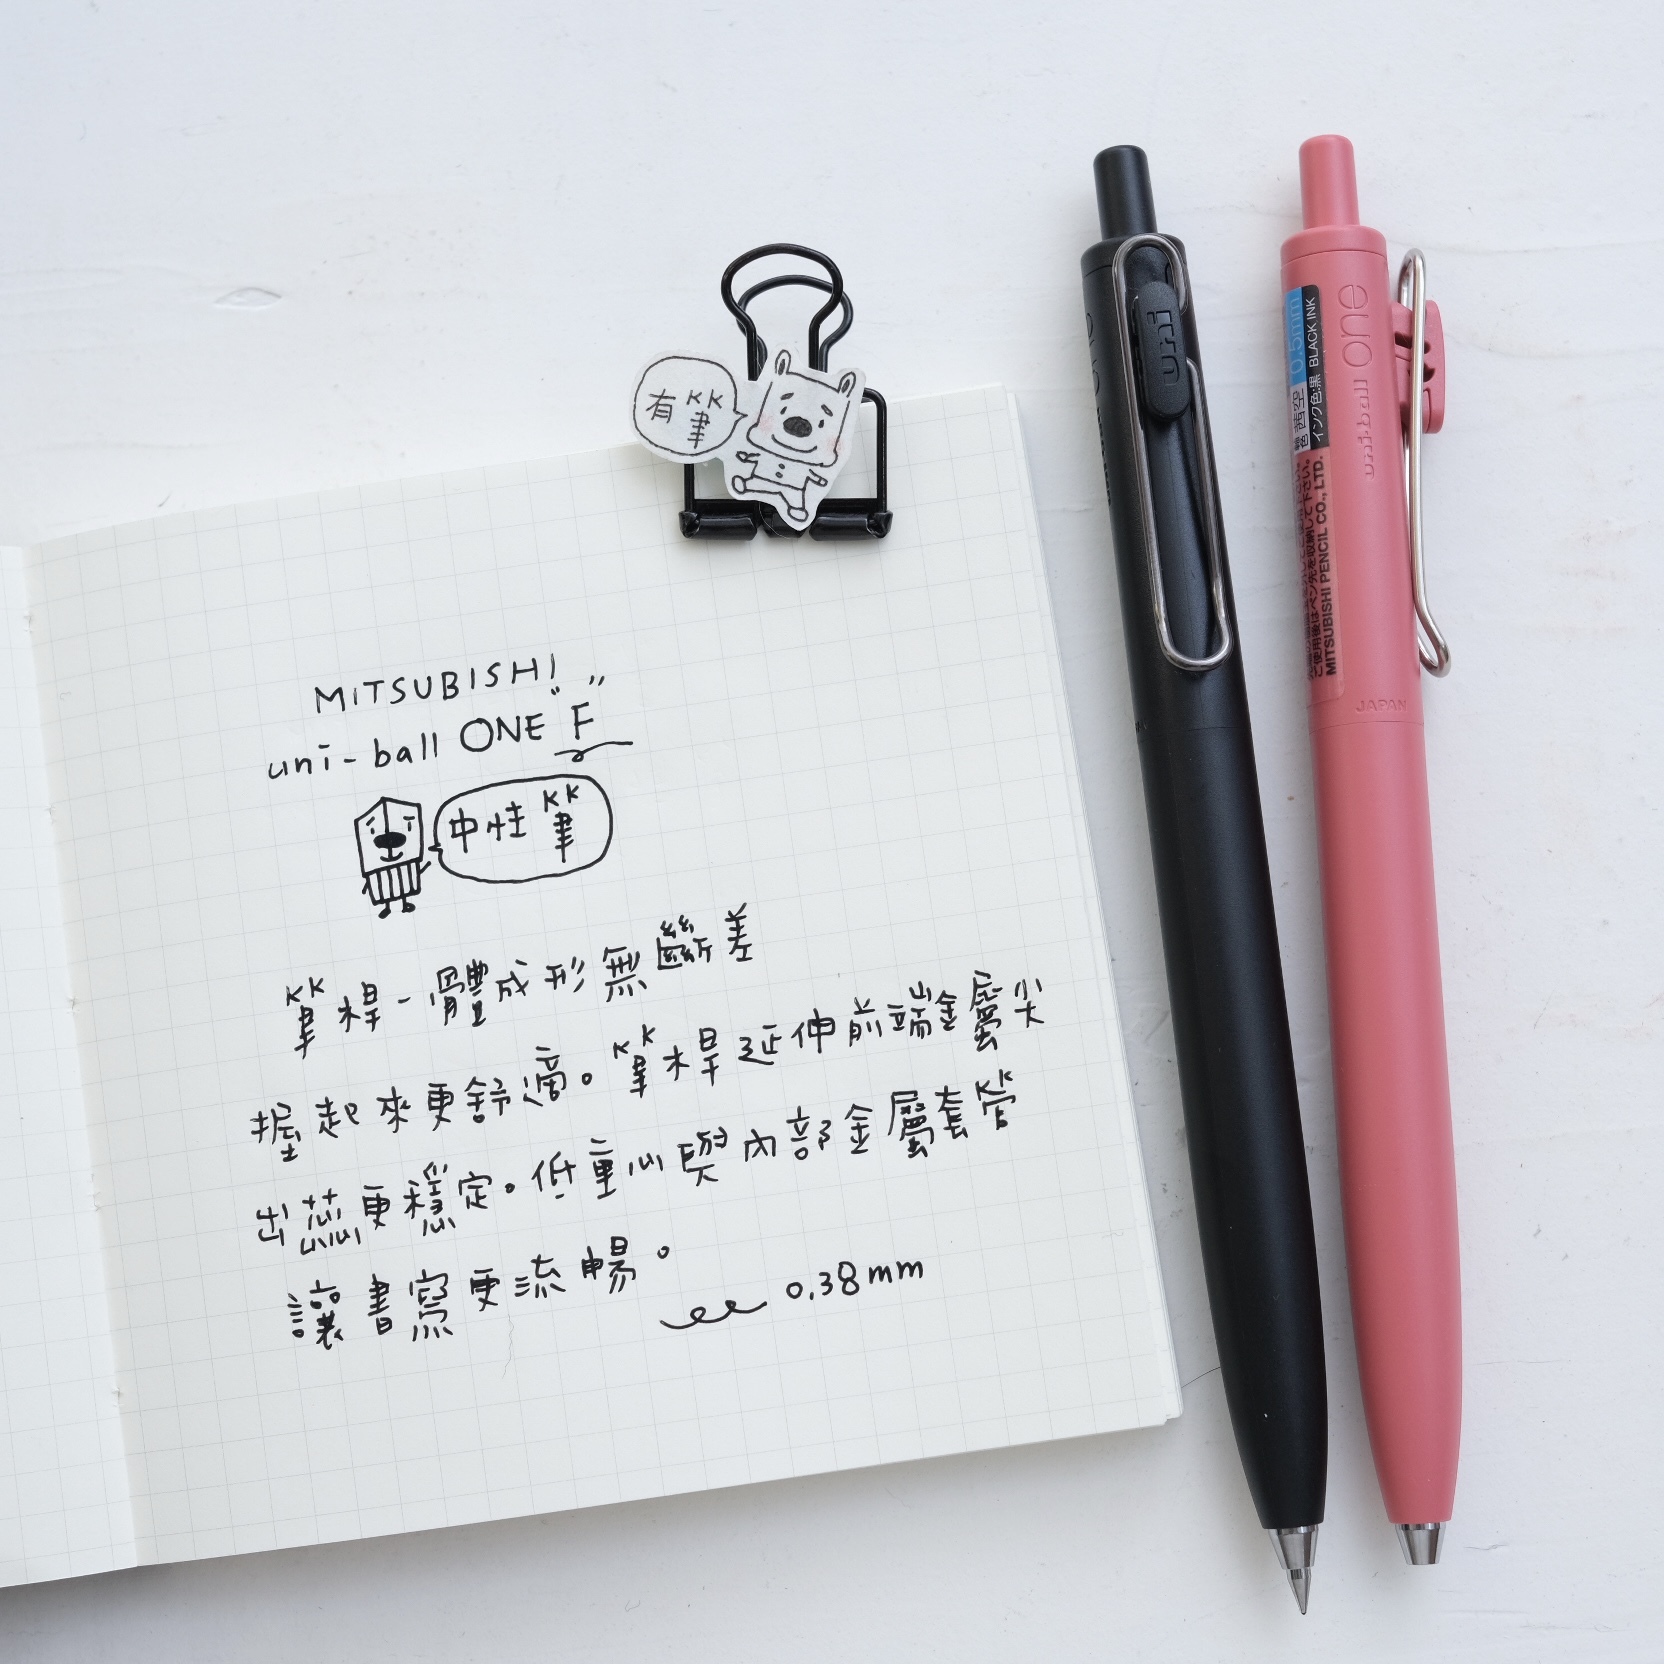 有筆
MITSUBISHI
uni-ball ONE "F"
中性筆
筆桿一體成形無斷差
握起來更舒適。筆桿延伸前端金屬尖
出芯更穩定。低重心與內部金屬套管
讓書寫更流暢。
0.38mm
uni
uni-ball one
0.5mm
インク色:黒 BLACK INK
ご使用後はペン先を収納して下さい。
MITSUBISHI PENCIL CO., LTD.
JAPAN